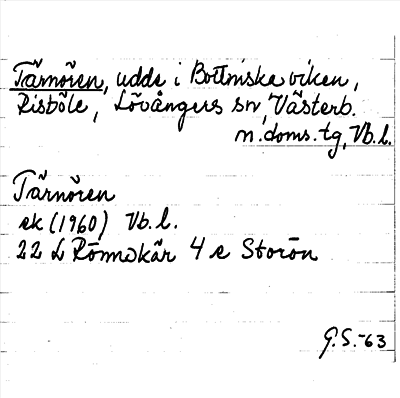 Tärnören, udde i Bottniska viken,
Risböle, Lövångers sn, Västerb.
n. doms. tg, Vb. l.
Tärnören
ek (1960) Vb. l.
22 L Rönnskär 4 e Storön
G.S. -63